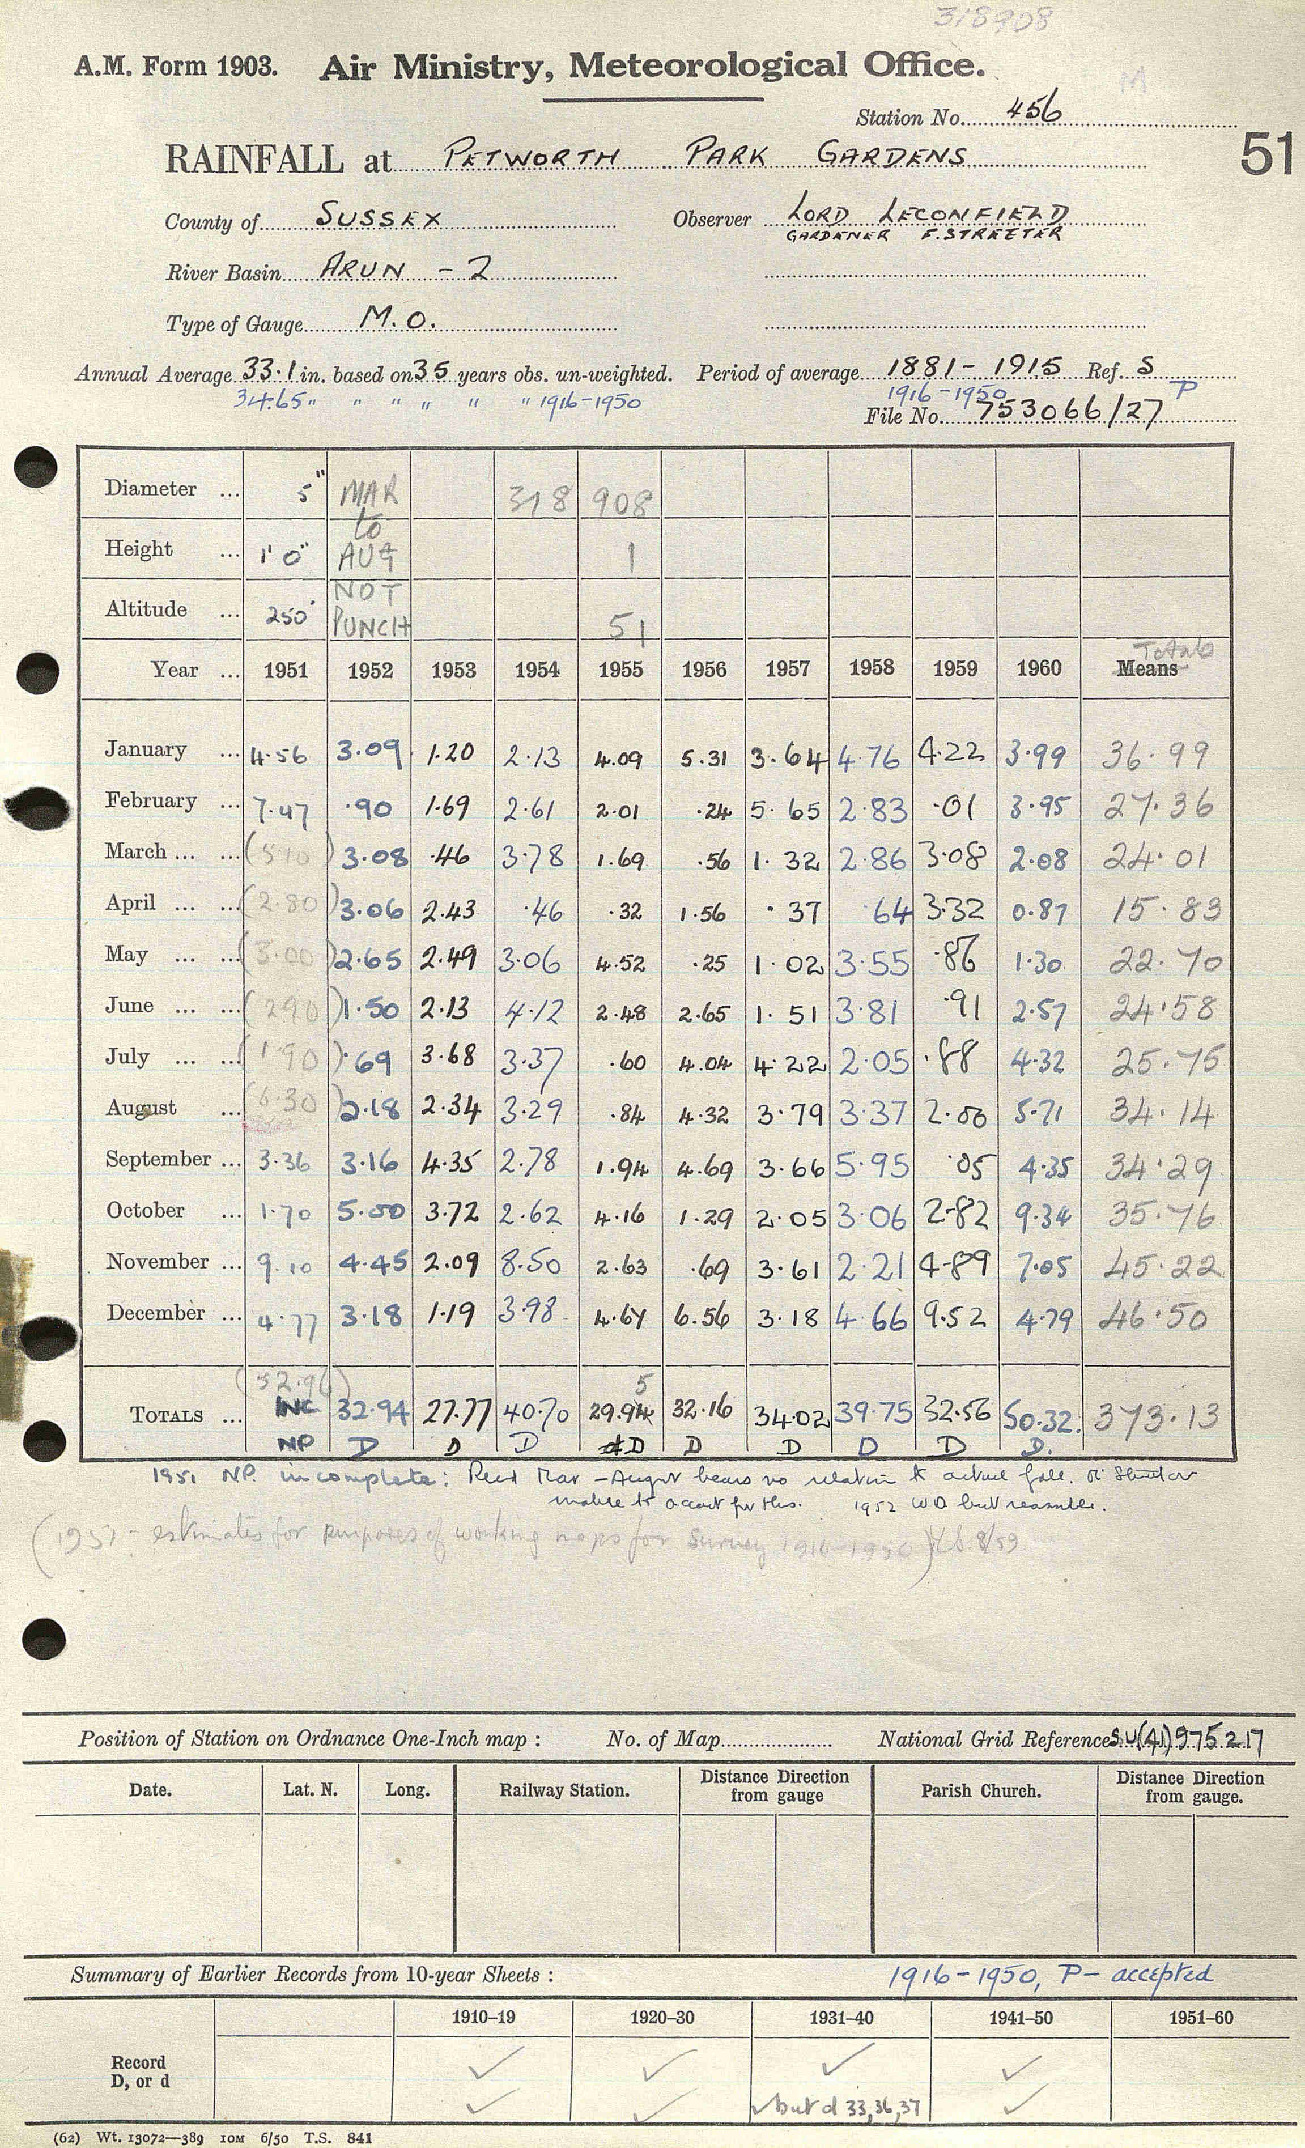 318908
A.M. Form 1903. Air Ministry, Meteorological Office.
M
Station No. 456
RAINFALL at PETWORTH PARK GARDENS
51
County of SUSSEX Observer LORD LECONFIELD
GARDENER F. STREETER
River Basin ARUN - 2
Type of Gauge M.O.
Annual Average 33.1 in. based on 35 years obs. un-weighted. Period of average 1881-1915 Ref. S
34.65 " " " " " " 1916-1950 1916-1950 P
File No. 753066/27
Diameter ... 5" MAR 318 908
to
Height ... 1'0" AUG 1
NOT
Altitude ... 250' PUNCH 51
Totals
Year ... 1951 1952 1953 1954 1955 1956 1957 1958 1959 1960 Means
January ... 4.56 3.09 1.20 2.13 4.09 5.31 3.64 4.76 4.22 3.99 36.99
February ... 7.47 .90 1.69 2.61 2.01 .24 5.65 2.83 .01 3.95 27.36
March ... ... (5.10) 3.08 .46 3.78 1.69 .56 1.32 2.86 3.08 2.08 24.01
April ... ... (2.80) 3.06 2.43 .46 .32 1.56 .37 .64 3.32 0.87 15.83
May ... ... (3.00) 2.65 2.49 3.06 4.52 .25 1.02 3.55 .86 1.30 22.70
June ... ... (2.90) 1.50 2.13 4.12 2.48 2.65 1.51 3.81 .91 2.57 24.58
July ... ... (1.90) .69 3.68 3.37 .60 4.04 4.22 2.05 .88 4.32 25.75
August ... (6.30) 2.18 2.34 3.29 .84 4.32 3.79 3.37 2.00 5.71 34.14
September ... 3.36 3.16 4.35 2.78 1.94 4.69 3.66 5.95 .05 4.35 34.29
October ... 1.70 5.00 3.72 2.62 4.16 1.29 2.05 3.06 2.82 9.34 35.76
November ... 9.10 4.45 2.09 8.50 2.63 .69 3.61 2.21 4.89 7.05 45.22
December ... 4.77 3.18 1.19 3.98 4.67 6.56 3.18 4.66 9.52 4.79 46.50
(52.96) 5
TOTALS ... INC 32.94 27.77 40.70 29.94 32.16 34.02 39.75 32.56 50.32 373.13
NP D D D D D D D D D.
1951 NP. incomplete: Read Mar - August bears no relation to actual fall. Mr Streeter
unable to account for this. 1952 WD but reasonable.
(1951 - estimates for purposes of working maps for Survey 1916-1950) 8/59
Position of Station on Ordnance One-Inch map : No. of Map National Grid Reference SU(41)975217
Date. Lat. N. Long. Railway Station. Distance Direction from gauge Parish Church. Distance Direction from gauge.
Summary of Earlier Records from 10-year Sheets : 1916-1950, P- accepted
1910–19 1920–30 1931–40 1941–50 1951–60
Record
D, or d
but d 33,36,37
(62) Wt. 13072—389 10M 6/50 T.S. 841